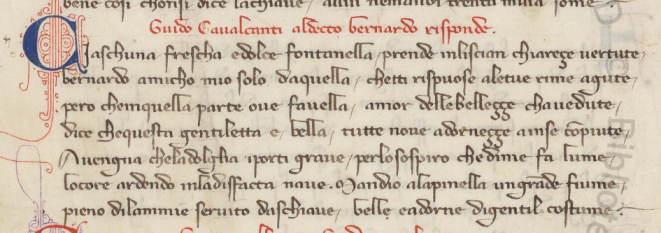 bene cosi chonsi dice lachiave / auu nemandoi trenta mila some
Guido Caualcanti aldecto bernardo risponde.
Ciaschuna frescha edolce fontanella / prende inliscian chiareçe uertute /
bernardo amicho mio solo daquella / chetti rispuose aletue rime agute /
pero cheinquella parte oue fauella / amor dellebelleççe chauedute /
dice chequesta gentiletta e / bella / tutte noue adorneççe ainse cōpiute /
Auengna cheladoglia iporti graue / perlosospiro chedime fa lume
locore ardendo inladisfacta naue. Mandio alapinella ungrāde fiume /
pieno dilammie seruito daschiaue / belle eadorne digentil costume /
Biblio